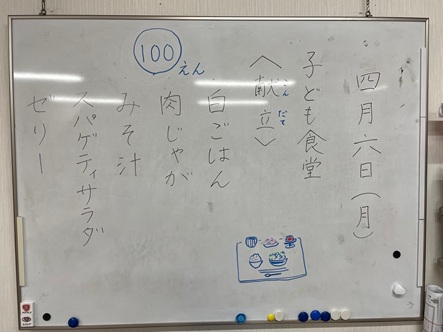 四月六日(月)
子ども食堂
〈献立〉
こんだて
白ごはん
肉じゃが
みそ汁
スパゲティサラダ
ゼリー
100えん